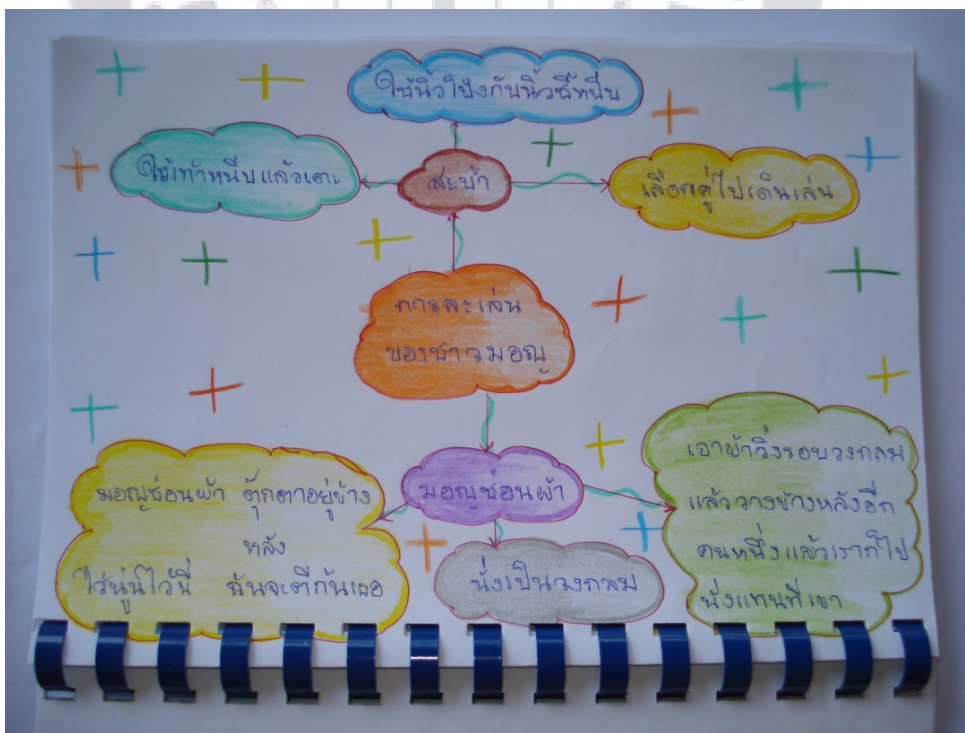 ใช้นิ้วโป้งกับนิ้วชี้หนีบ
ใช้เท้าหนีบแล้วเตะ
สะบ้า
เลือกคู่ไปเดินเล่น
การละเล่น
ของชาวมอญ
มอญซ่อนผ้า
มอญซ่อนผ้า ตุ๊กตาอยู่ข้าง
หลัง
ไว้นู่นไว้นี่ ฉันจะตีก้นเธอ
นั่งเป็นวงกลม
เอาผ้าวิ่งรอบวงกลม
แล้ววางข้างหลังอีก
คนหนึ่งแล้วเราก็ไป
นั่งแทนที่เขา